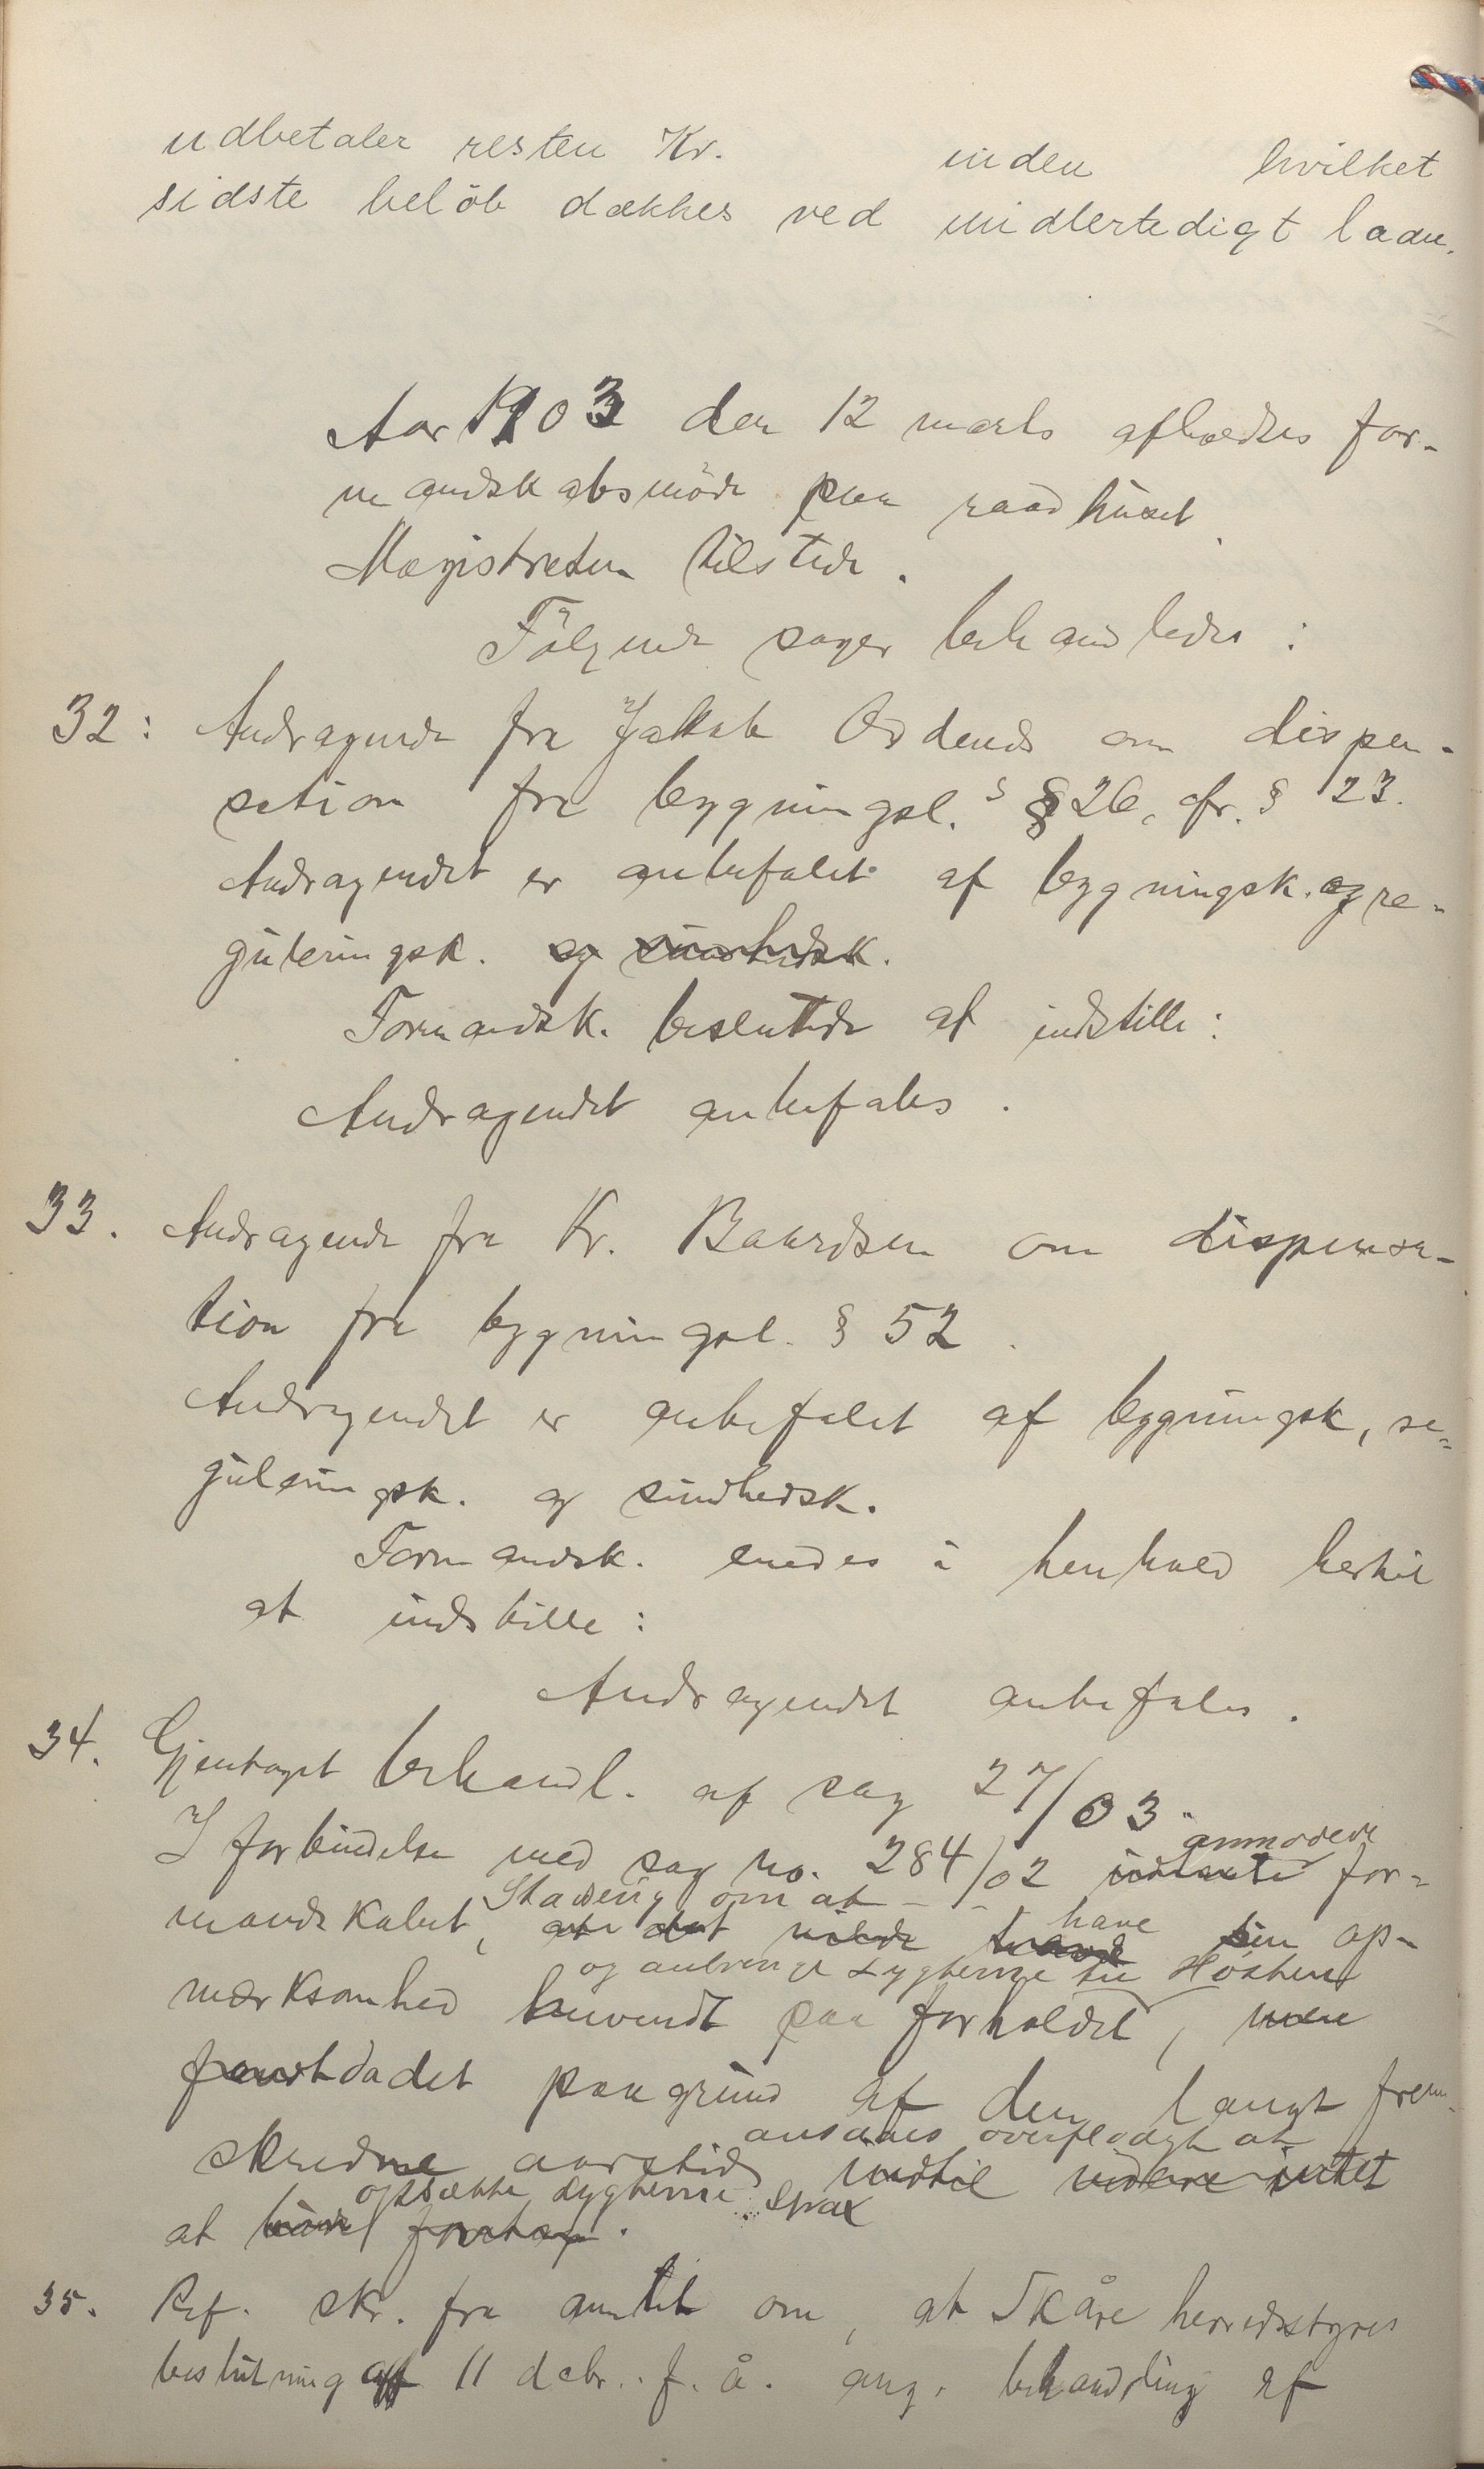 udbetaler resten Kr. inden hvilket
sidste beløb dækkes ved midlertedigt laan.
Aar 1903 den 12 marts afholdtes for-
mandskabsmöde paa raadhuset.
Magistraten tilstede.
Fölgende sager behandledes:
32: Andragende fra Jakob Oddenes om dispen-
sation fra bygningsl.s § 26, cfr. § 23.
Andragendet er anbefalet af bygningsk. og re-
guleringsk. og sundhedsk.
Formandsk. besluttede at indstille:
Andragendet anbefales.
33. Andragende fra Kr. Baardsen om dispensa-
tion fra bygningsl. § 52.
Andragendet er anbefalet af bygningsk, re-
guleringsk. og sundhedsk.
Formandsk. enedes i henhold hertil
at indstille:
Andragendet anbefales.
34. Gjentaget behandl. af sag 27/03.
anmodede
I forbindelse med sag no. 284/02 for-
Stadsing om at have
mandskabet, at det vilde sin op-
og anbringe Lygterne til Høsten
mærksomhed henvendt paa forholdet, men
fandt da det paa grund af den langt frem-
ansaaes overflødigt at
skredne aarstid indtil videre intet
opsætte Lygterne strax
at burde foretage.
35. Ref. skr. fra amtet om, at Skåre herredsstyres
beslutning af 11 debr. f. å. ang. behandling af